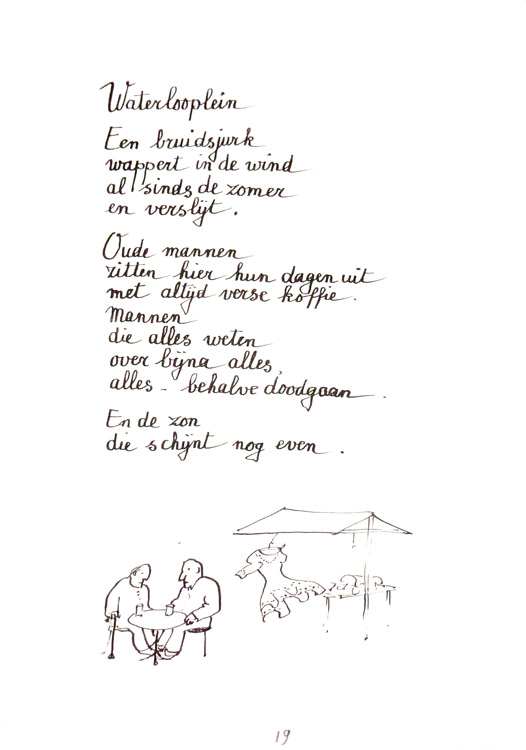 Waterlooplein
Een bruidsjurk
wappert in de wind
al sinds de zomer
en verslijt.
Oude mannen
zitten hier hun dagen uit
met altijd verse koffie.
Mannen
die alles weten
over bijna alles,
alles - behalve doodgaan.
En de zon
die schijnt nog even.
19